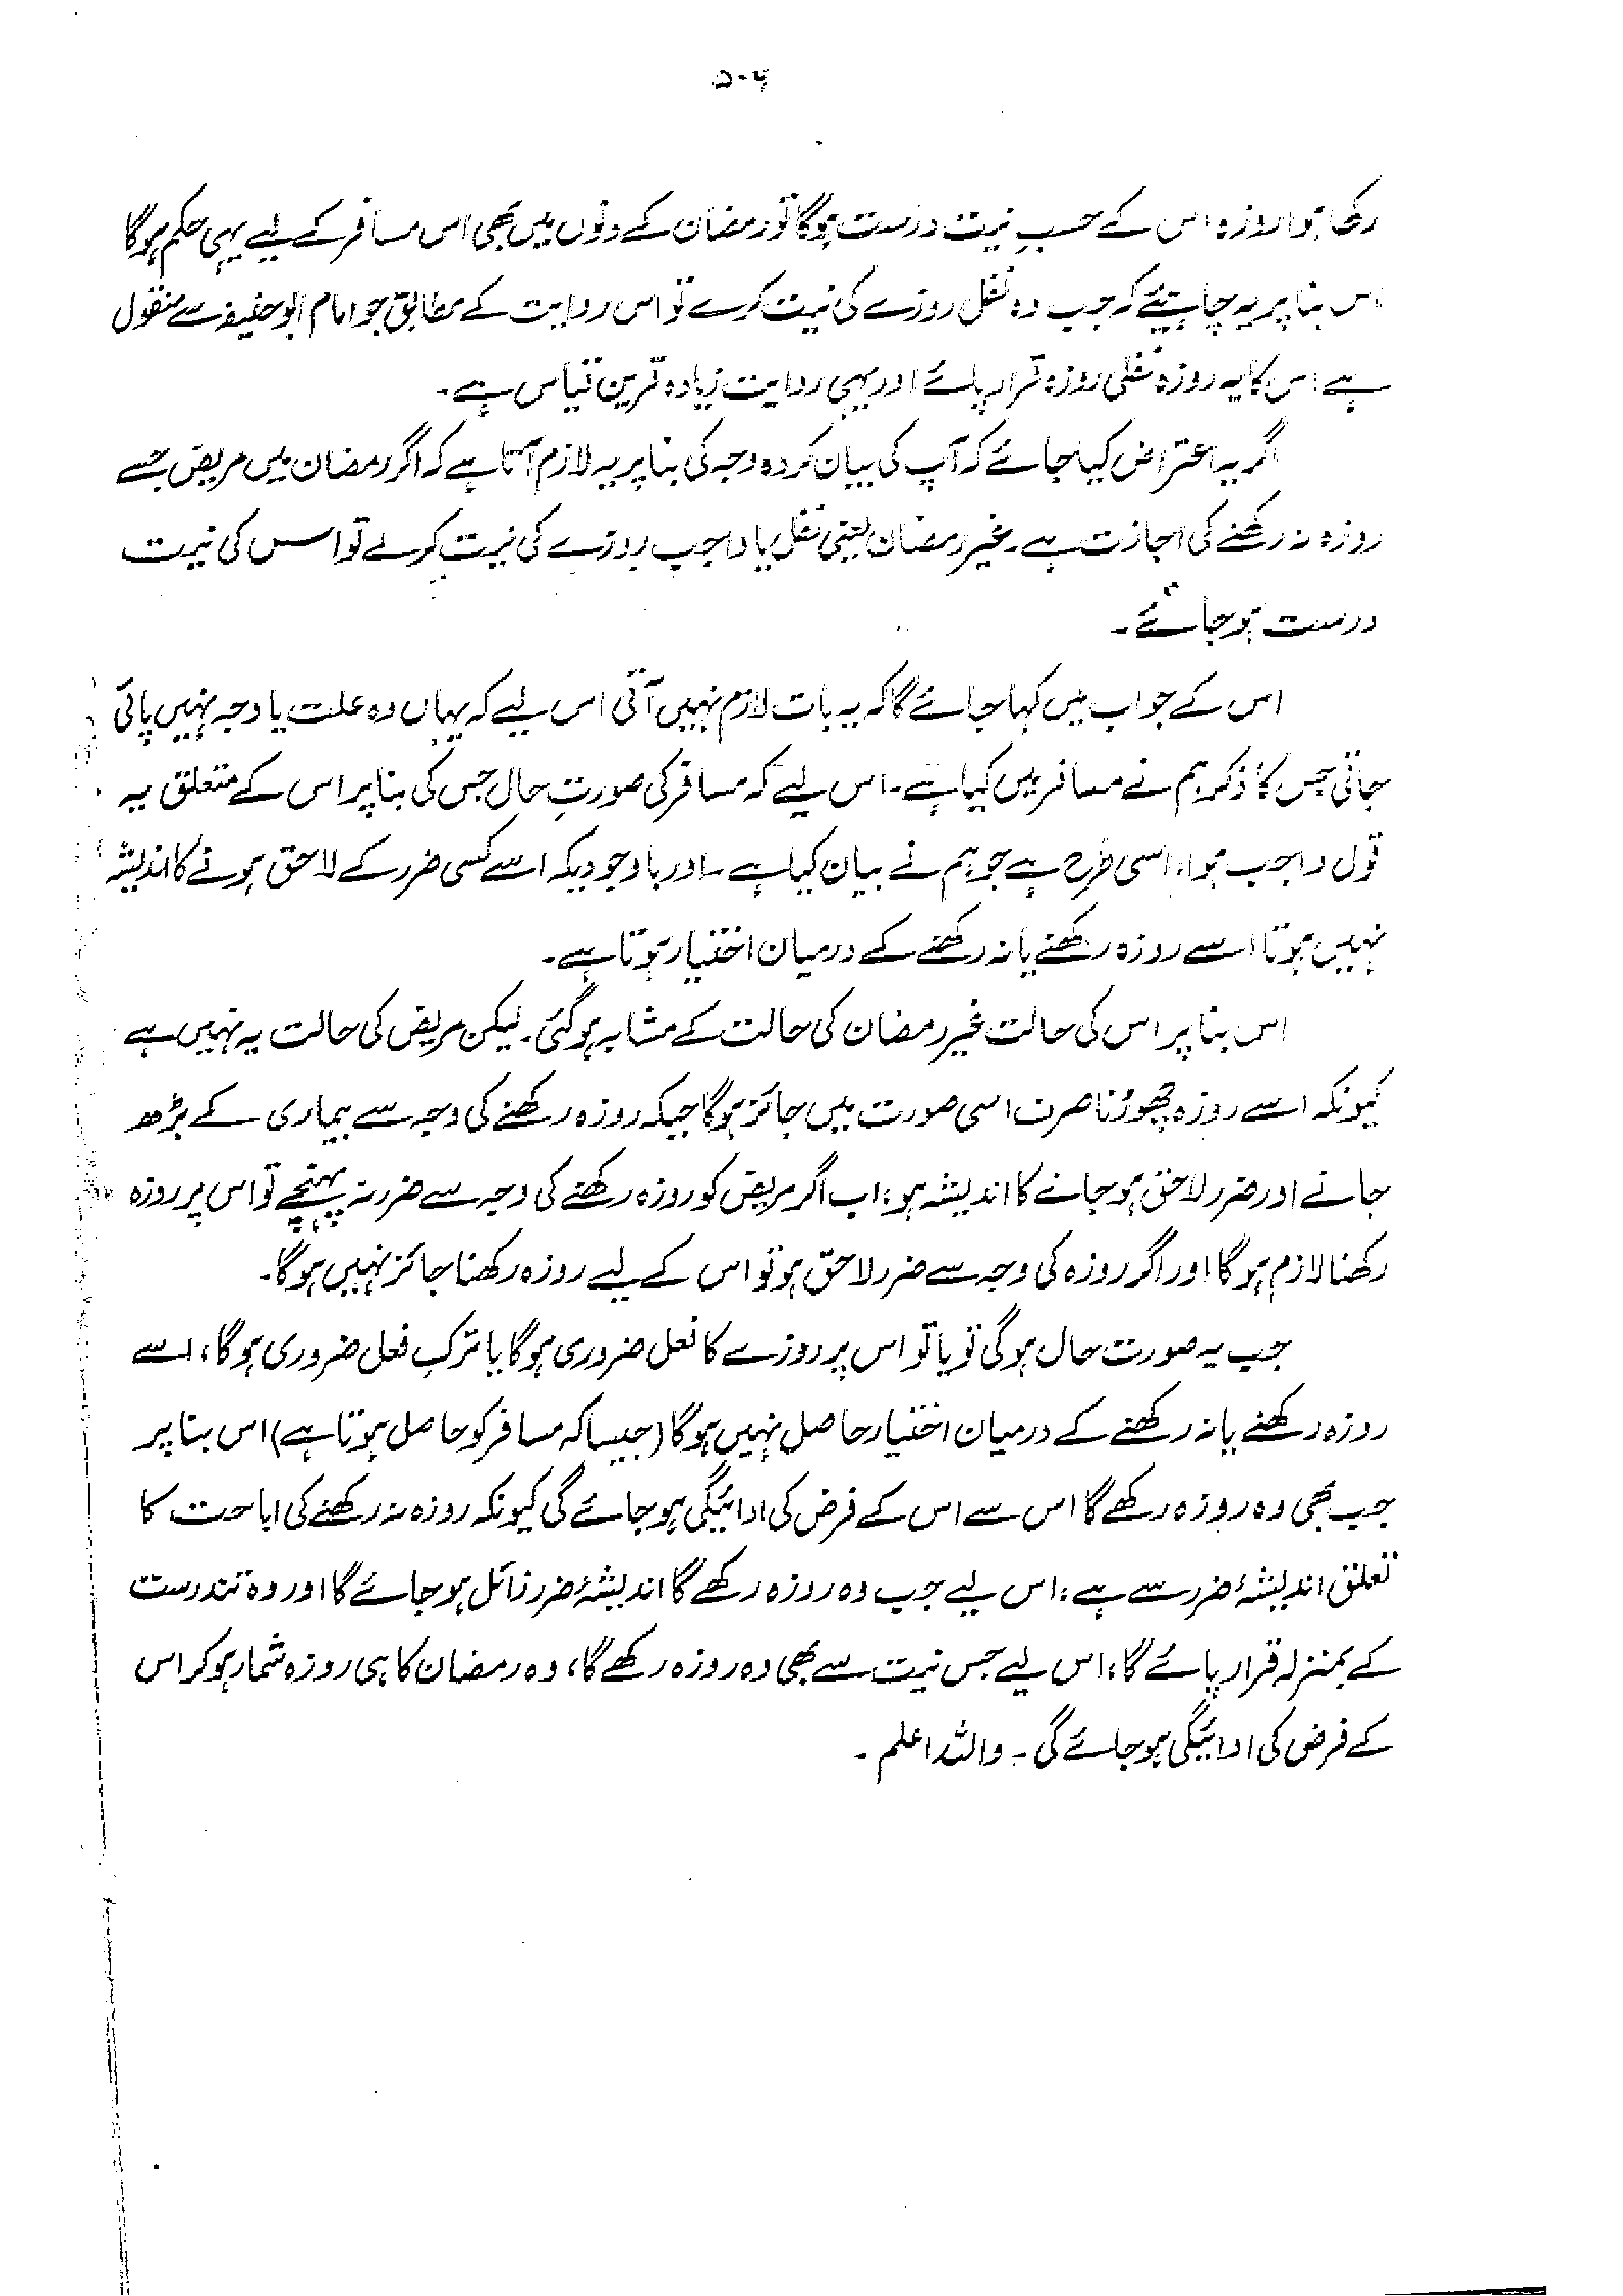 ۵۰۶
رکھا ہوا روزہ اس کے حسبِ نیت درست ہوگا تو رمضان کے دنوں میں بھی اس مسافر کے لیے یہی حکم ہوگا
اس بنا پر یہ چاہیئے کہ جب وہ نفل روزے کی نیت کرے تو اس روایت کے مطابق جو امام ابو حنیفہ سے منقول
ہے اس کا یہ روزہ نفلی روزہ قرار پائے اور یہی روایت زیادہ قرین قیاس ہے۔
اگر یہ اعتراض کیا جائے کہ آپ کی بیان کردہ وجہ کی بنا پر یہ لازم آتا ہے کہ اگر رمضان میں مریض جسے
روزہ نہ رکھنے کی اجازت ہے۔ غیر رمضان یعنی نفل یا واجب روزے کی نیت کرلے تو اس کی نیت
درست ہو جائے۔
اس کے جواب میں کہا جائے گا کہ یہ بات لازم نہیں آتی اس لیے کہ یہاں وہ علت یا وجہ نہیں پائی
جاتی جس کا ذکر ہم نے مسافر میں کیا ہے۔ اس لیے کہ مسافر کی صورتِ حال جس کی بنا پر اس کے متعلق یہ
قول واجب ہوا، اسی طرح ہے جو ہم نے بیان کیا ہے۔ اور باوجودیکہ اسے کسی ضرر کے لاحق ہونے کا اندیشہ
نہیں ہوتا اسے روزہ رکھنے یا نہ رکھنے کے درمیان اختیار ہوتا ہے۔
اس بنا پر اس کی حالت غیر رمضان کی حالت کے مشابہ ہو گئی۔ لیکن مریض کی حالت یہ نہیں ہے
کیونکہ اسے روزہ چھوڑنا صرف اسی صورت میں جائز ہوگا جبکہ روزہ رکھنے کی وجہ سے بیماری کے بڑھ
جانے اور ضرر لاحق ہو جانے کا اندیشہ ہو، اب اگر مریض کو روزہ رکھنے کی وجہ سے ضرر نہ پہنچے تو اس پر روزہ
رکھنا لازم ہوگا اور اگر روزہ کی وجہ سے ضرر لاحق ہو تو اس کے لیے روزہ رکھنا جائز نہیں ہوگا۔
جب یہ صورت حال ہوگی تو یا تو اس پر روزے کا فعل ضروری ہوگا یا ترکِ فعل ضروری ہوگا، اسے
روزہ رکھنے یا نہ رکھنے کے درمیان اختیار حاصل نہیں ہوگا (جیسا کہ مسافر کو حاصل ہوتا ہے) اس بنا پر
جب بھی وہ روزہ رکھے گا اس سے اس کے فرض کی ادائیگی ہو جائے گی کیونکہ روزہ نہ رکھنے کی اباحت کا
تعلق اندیشۂ ضرر سے ہے، اس لیے جب وہ روزہ رکھے گا اندیشۂ ضرر زائل ہو جائے گا اور وہ تندرست
کے بمنزلہ قرار پائے گا، اس لیے جس نیت سے بھی وہ روزہ رکھے گا، وہ رمضان کا ہی روزہ شمار ہو کر اس
کے فرض کی ادائیگی ہو جائے گی۔ واللہ اعلم۔